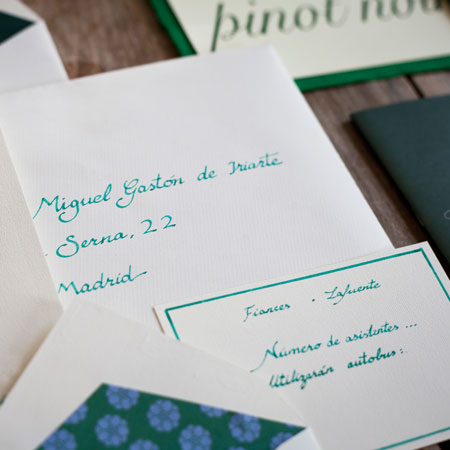 pinot no
Miguel Gastón de Iriarte
Serna, 22
Madrid
Frances . Lafuente
Número de asistentes ...
Utilizarán autobus: